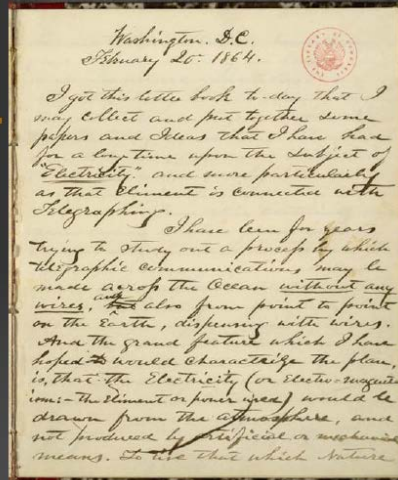 Washington. D.C.
February 20. 1864.
I got this letter book to-day that I
may collect and put together some
papers and Ideas that I have had
for a long time upon the subject of
"Electricity" and more particularly
as that Eliment is connected with
Telegraphing.
I have been for years
trying to study out a process by which
telegraphic communications may be
made across the Ocean without any
wires, and also from point to point
on the Earth, dispensing with wires.
And the grand feature which I have
hoped would characterize the plan,
is, that the Electricity (or Electro-magnet-
ism - the Eliment or power used) would be
drawn from the atmosphere, and
not produced by artificial or mechanical
means. To use that which Nature